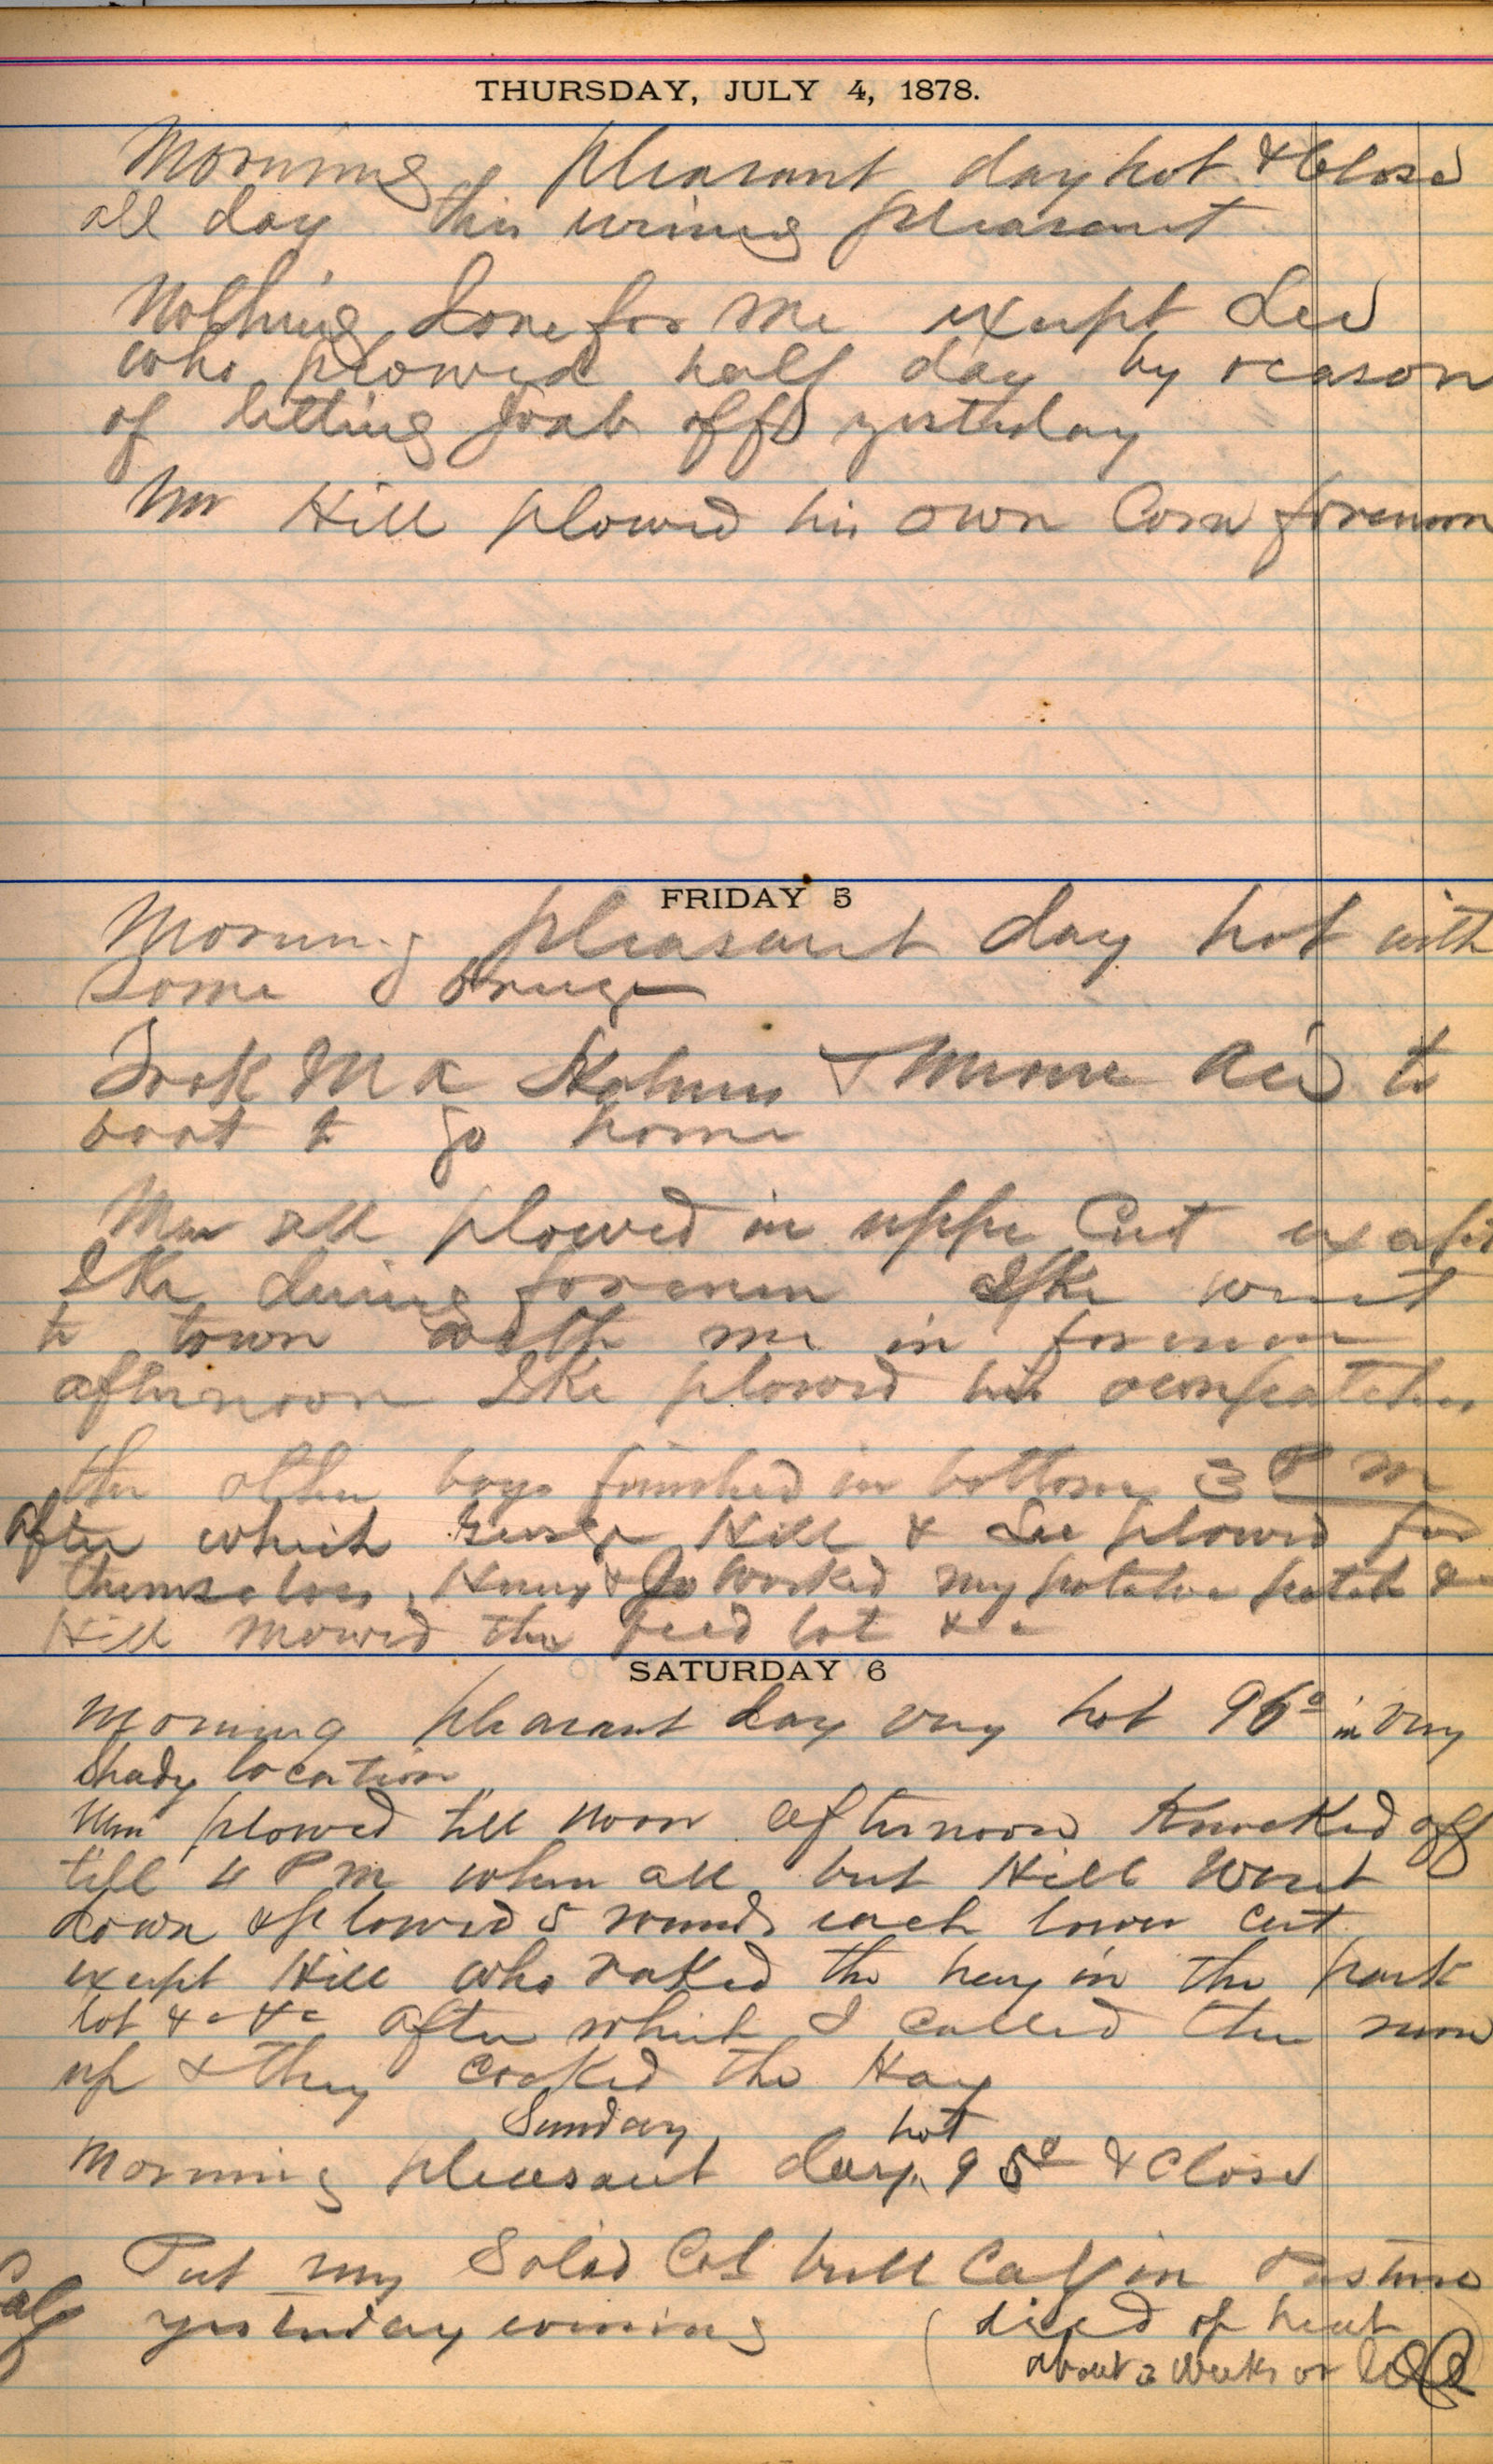 THURSDAY, JULY 4, 1878.
Morning pleasant day hot & Close
all day this evening pleasant
Nothing done for me except Lee
who plowed half day by reason
of letting Joab off yesterday
Mr Hill plowed his own Corn forenoon
FRIDAY 5
Morning pleasant day hot with
Some Breeze
Took M & to
boat to go home
Men all plowed in upper Cut except
Ike during forenoon Ike went
to town with me in forenoon
afternoon Ike plowed his own patches
the other boys finished in bottom 3 P M
After which Hill & Lee plowed for
themselves, Henry & Jo worked my potatoe patch &
Hill mowed the feed lot &c
SATURDAY 6
Morning pleasant day very hot 96° in very
Shady location
Men plowed till noon afternoon Knocked off
till 4 P M when all but Hill Went
down & plowed 5 rounds each lower cut
except Hill who raked the hay in the
lot &c &c After which I called the men
up & they cocked the Hay
Sunday
Morning pleasant day hot 95° & Close
Put my Solid Col bull Calf in Pasture
Calf yesterday evening (died of heat
about 2 weeks or